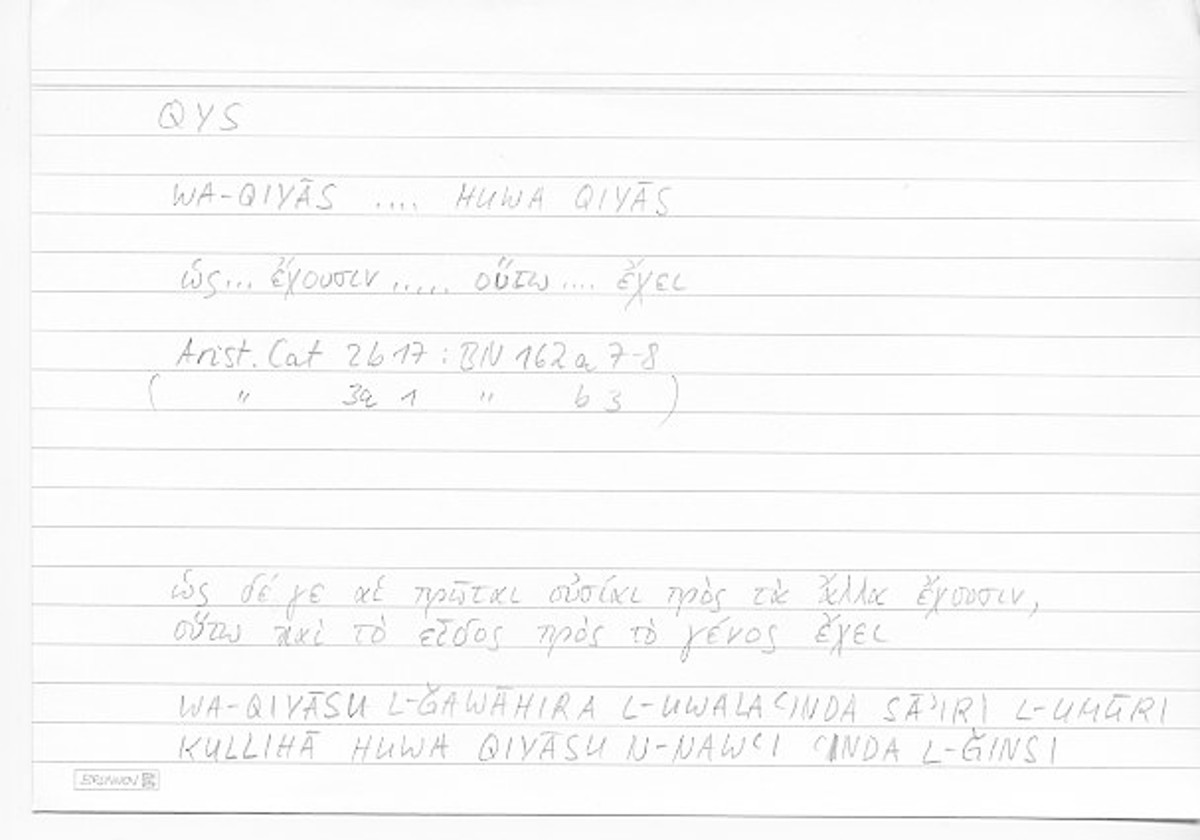 QYS
WA-QIYĀS .... HUWA QIYĀS
ὡς... ἔχουσιν ..... οὕτω .... ἔχει
Arist. Cat 2b17 : BN 162a 7-8
( " 3a 1 " b 3 )
ὡς δέ γε αἱ πρῶται οὐσίαι πρὸς τὰ ἄλλα ἔχουσιν,
οὕτω καὶ τὸ εἶδος πρὸς τὸ γένος ἔχει
WA-QIYĀSU L-ĞAWĀHIRA L-UWALA ʿINDA SĀʾIRI L-UMŪRI
KULLIHĀ HUWA QIYĀSU N-NAWʿI ʿINDA L-ĞINSI